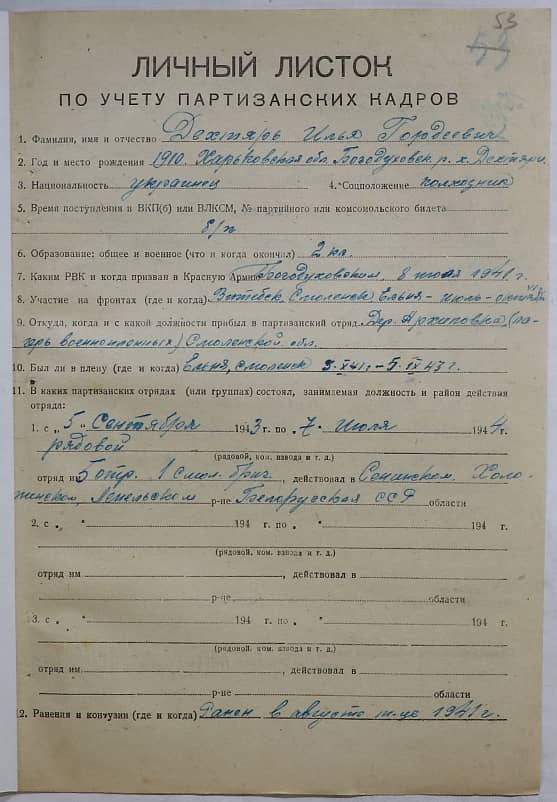 53
ЛИЧНЫЙ ЛИСТОК
ПО УЧЕТУ ПАРТИЗАНСКИХ КАДРОВ
1. Фамилия, имя и отчество Дехтярь Илья Гордеевич
2. Год и место рождения 1910. Харьковская обл. Богодуховск. р. х. Дехтяри.
3. Национальность украинец 4. Соцположение колхозник
5. Время поступления в ВКП(б) или ВЛКСМ, № партийного или комсомольского билета
б/п
6. Образование: общее и военное (что и когда окончил) 2 кл.
7. Каким РВК и когда призван в Красную Армию Богодуховским, 8 июля 1941 г.
8. Участие на фронтах (где и когда) Витебск, Смоленск Ельня - июль - октябрь
9. Откуда, когда и с какой должности прибыл в партизанский отряд Дер. Архиповка (ла-
герь военнопленных) Смоленской обл.
10. Был ли в плену (где и когда) Ельня, Смоленск 3.XI41г - 5.IX 43 г.
11. В каких партизанских отрядах (или группах) состоял, занимаемая должность и район действия
отряда:
1. с „5" Сентября 1943 г. по „7" Июля 1944 г.
рядовой
(рядовой, ком. взвода и т. д.)
отряд им 5 отр. 1 Смол. бриг., действовал в Сенинском, Холо-
пинском, Лепельском р-не Белорусская ССР области
2. с „ " 194 г. по „ " 194 г.
(рядовой, ком. взвода и т. д.)
отряд им , действовал в
р-не области
3. с „ " 194 г. по „ " 194 г.
(рядовой, ком. взвода и т. д.)
отряд им , действовал в
р-не области
12. Ранения и контузии (где и когда) Ранен в августе м-це 1941 г.